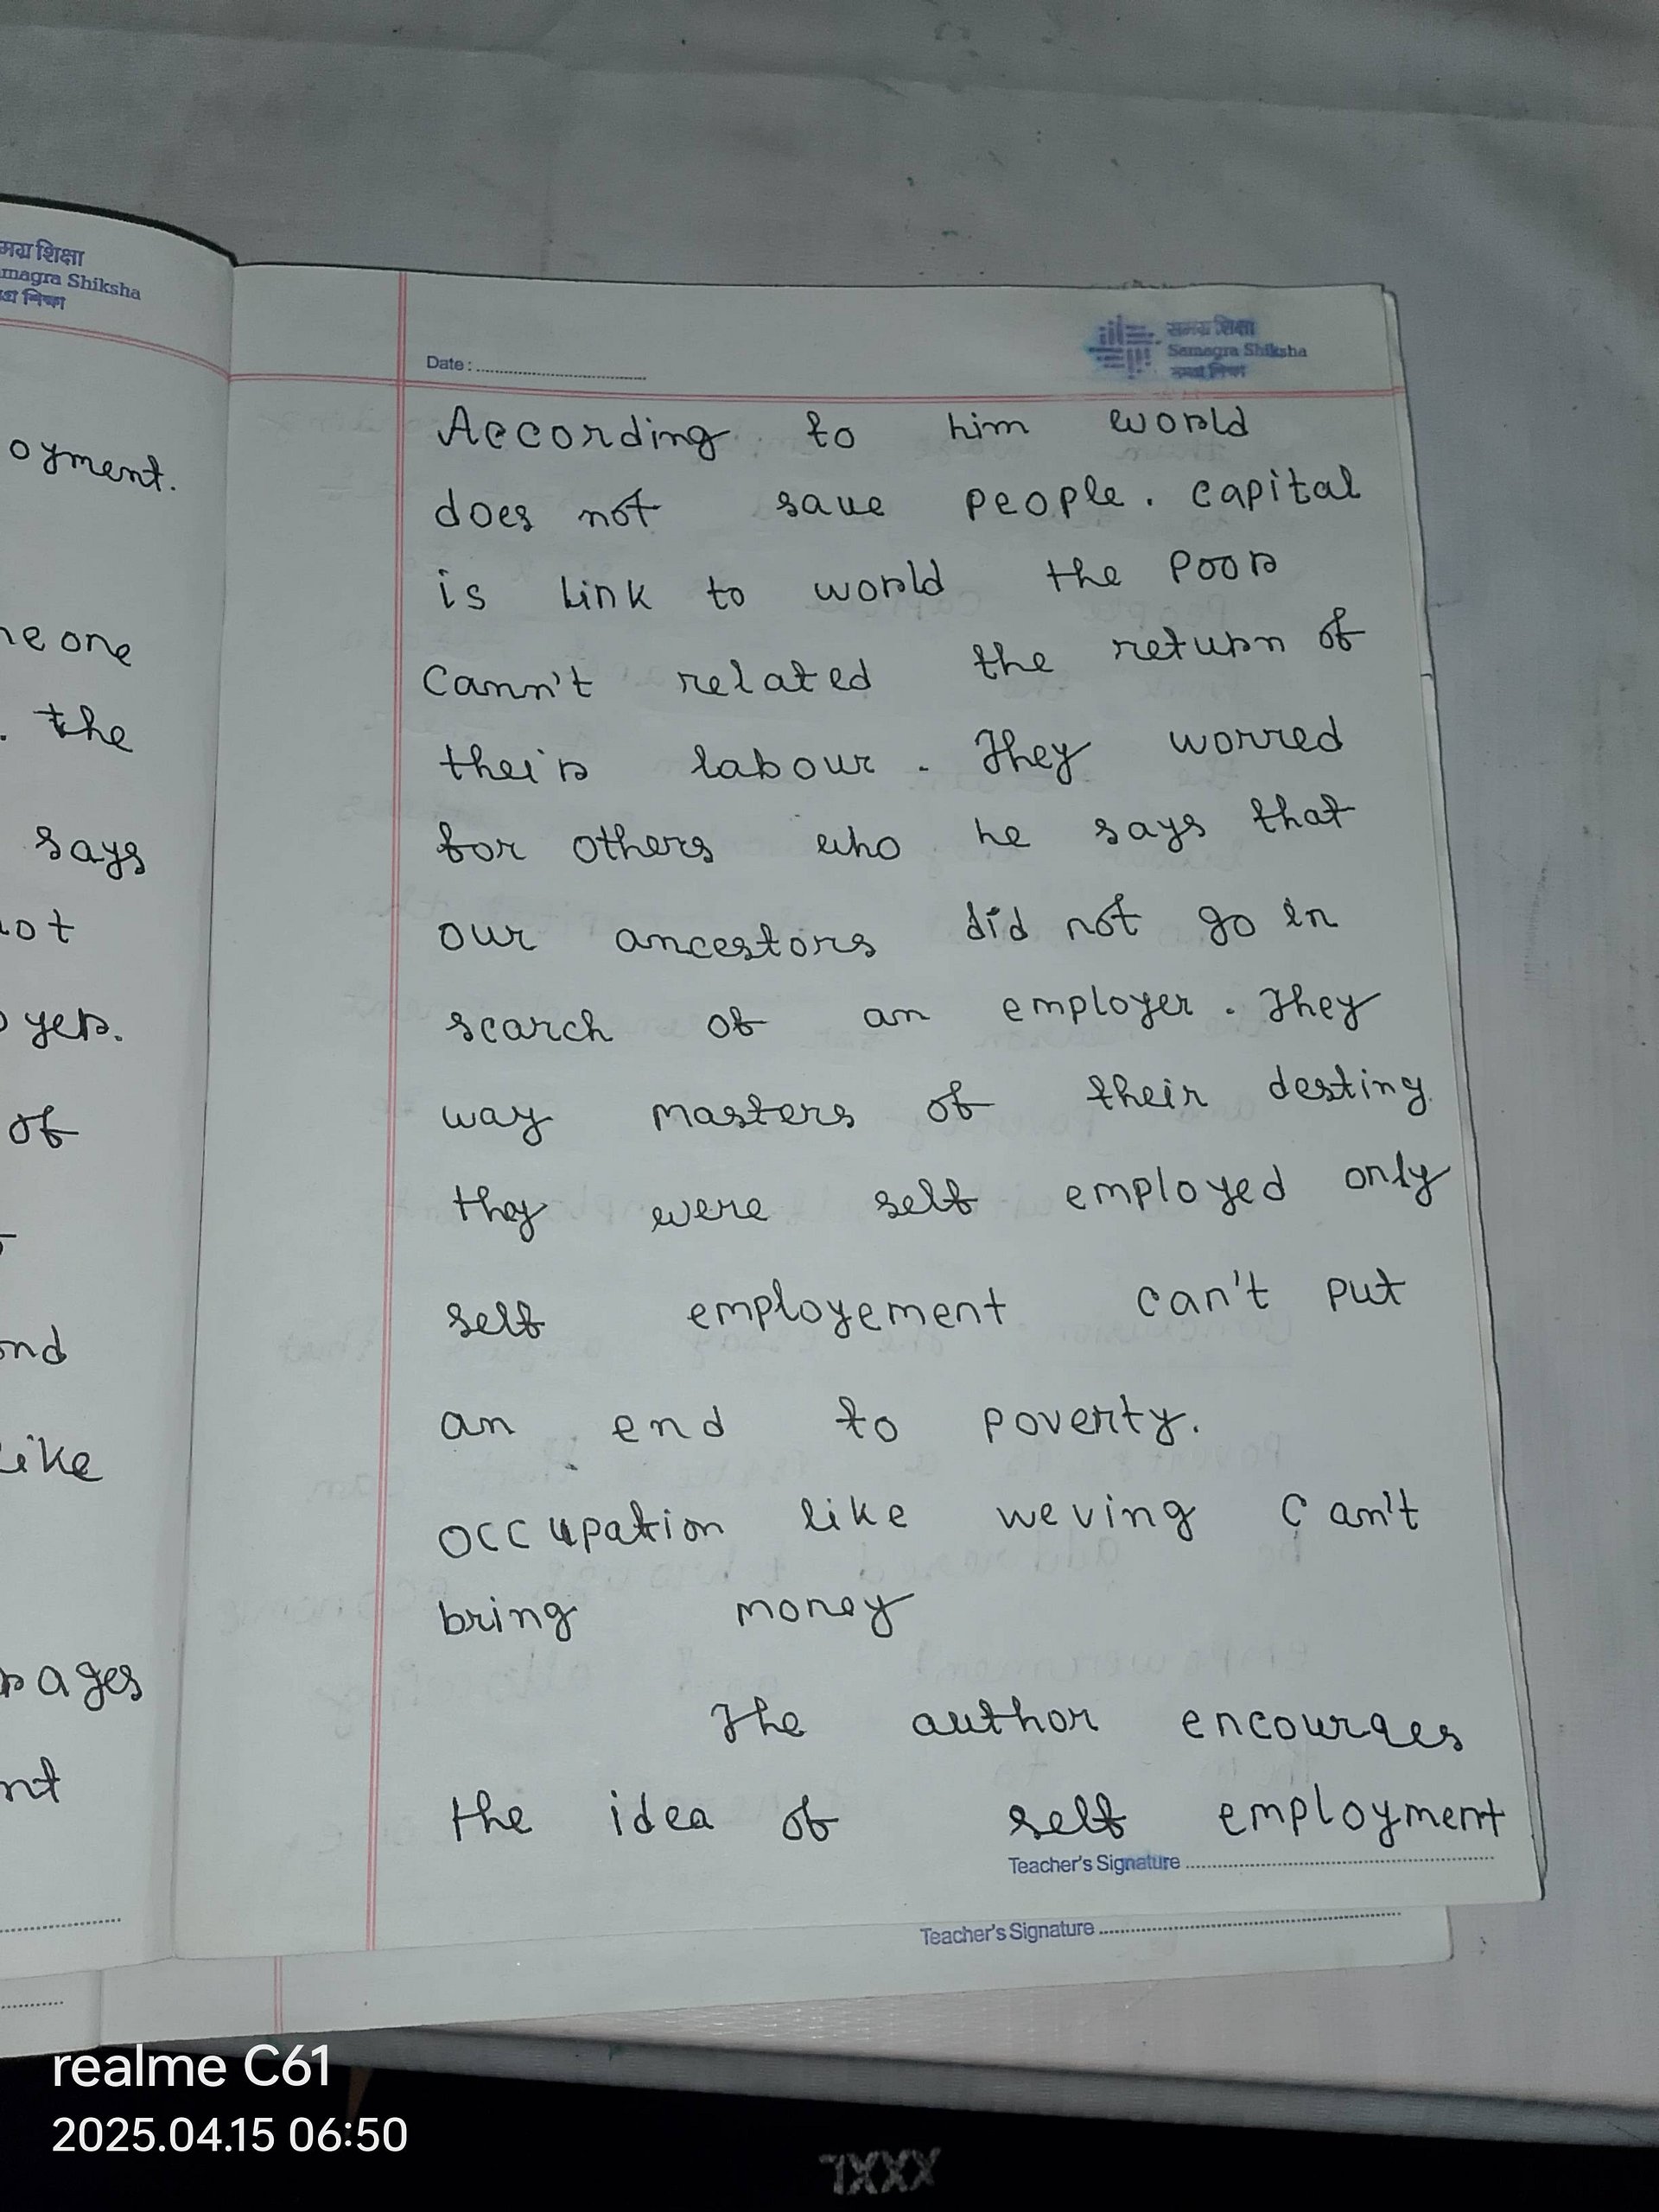 मग्र शिक्षा
magra Shiksha
oyment.
ne one
. the
says
not
yer.
of
ond
like
ages
nt
समग्र शिक्षा
Samagra Shiksha
Date :
According to him world
does not save people. capital
is link to world the poor
cann't related the return of
their labour. They worred
for others who he says that
our ancestors did not go in
search of an employer. They
way masters of their destiny
they were self employed only
self employement can't put
an end to poverty.
occupation like weving can't
bring money
The author encourges
the idea of self employment
Teacher's Signature
Teacher's Signature
realme C61
2025.04.15 06:50